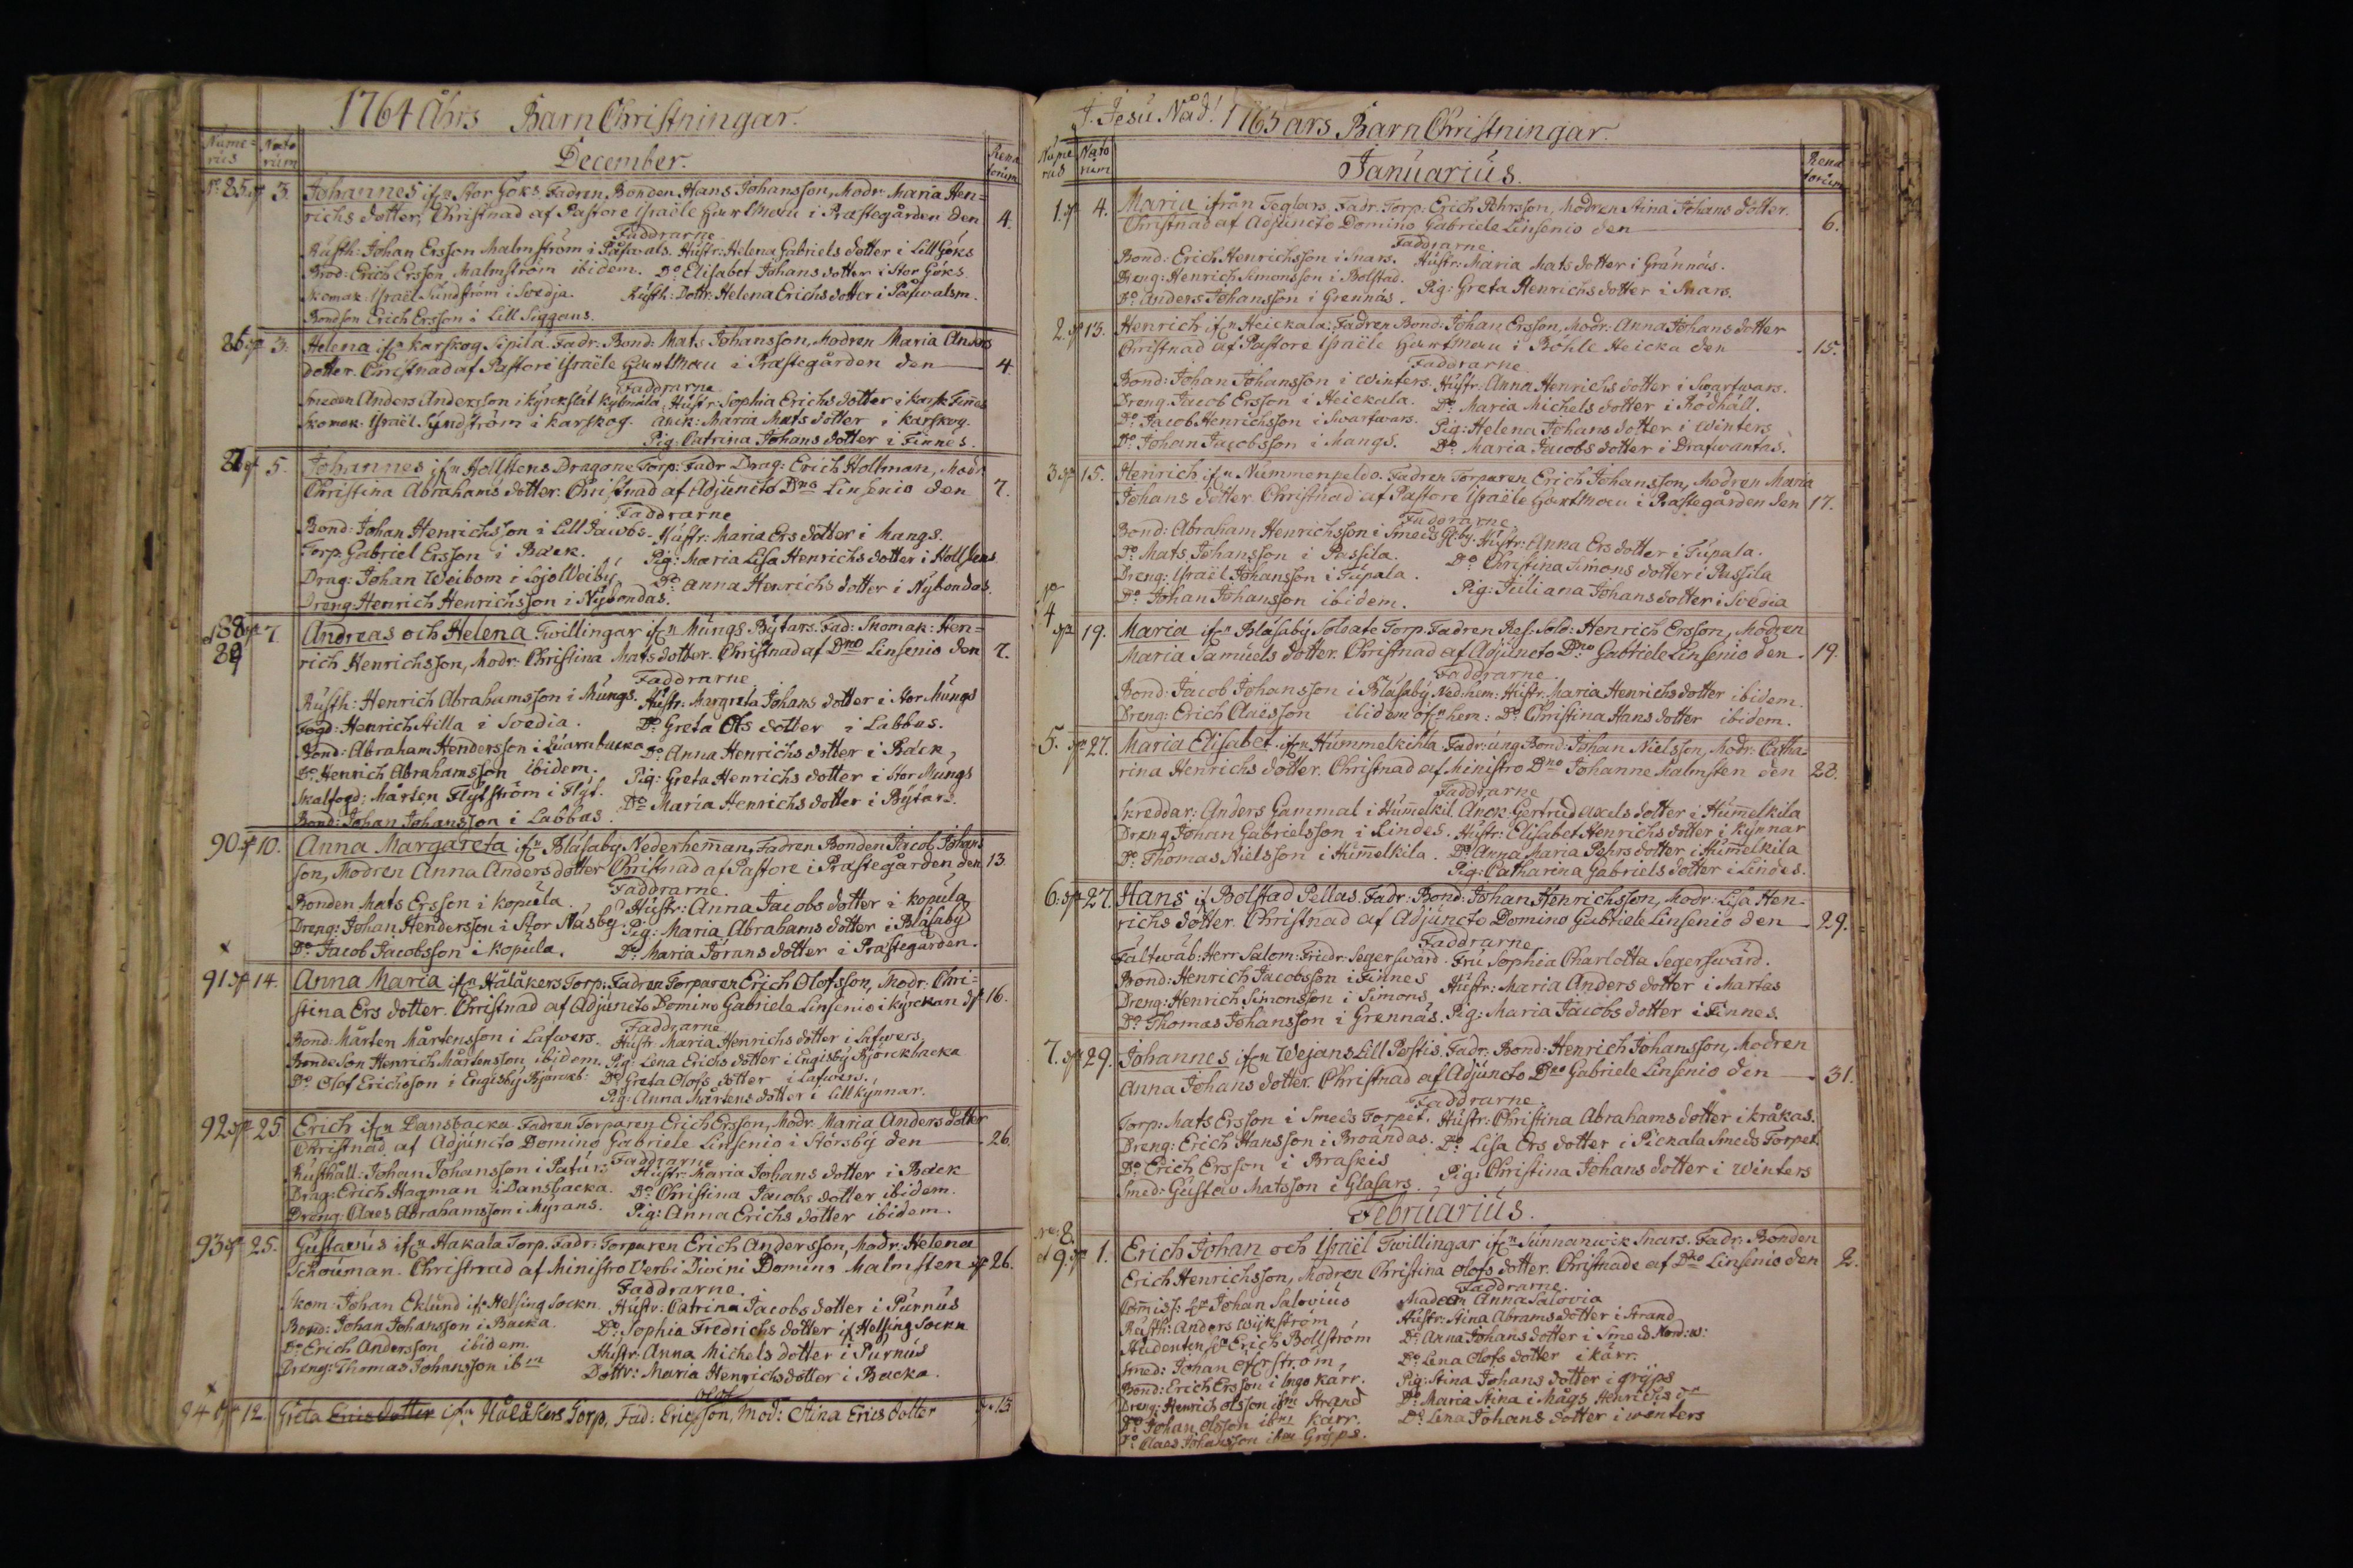 1764 Åhrs Barn Christningar.
Nume=
rus
Nato
rum
December.
Rena
torum
No. 85. 3. Johannes ifrn Stor Göks. Fadren Bonden Hans Johansson, Modr: Maria Hen=
richs dotter, Christnad af Pastore Israële Hartman i Præstegården den 4.
Faddrarne
Rusth: Johan Ersson Malmström i Påswals. Hustr: Helena Gabriels dotter i Lill Göks
Brod: Erich Ersson Malmström ibidem. Do Elisabet Johans dotter i Stor Göks.
Skomak: Israël Sundström i Svedja. Rusth: Dottr: Helena Erichs dotter i Påswalsm.
Bondson Erich Ersson i Lill Siggens.
86 3. Helena ifrn Karskog Sipila. Fadr: Bond: Mats Johansson, Modren Maria Anders
dotter. Christnad af Pastore Israële Hartman i Præstegården den 4.
Faddrarne
Smeden Anders Andersson i Kyrckslät Kylmäla. Hustr: Sophia Erichs dotter i Karsk Finnes
Skomak: Israël Syndström i Karskog. Anck: Maria Mats dotter i Karskog.
Pig: Catrina Johans dotter i Finnes.
87 5. Johannes ifrn Hollstens Dragone Torp: Fadr Drag: Erich Holtman, Modr
Christina Abrahams dotter. Christnad af Adjuncto Dno Linsenio den 7.
Faddrarne
Bond: Johan Henrichsson i Lill Jacobs. Hustr: Maria Ers dotter i Mangs.
Torp. Gabriel Ersson i Bäck. Pig: Maria Lisa Henrichs dotter i Hollstens
Drag: Johan Weibom i Lojo Weiby Do Anna Henrichs dotter i Nybondas.
Dreng Henrich Henrichsson i Nybondas.
88 7. Andreas och Helena Twillingar ifrn Mungs Bytars. Fad: Skomak: Hen=
89 rich Henrichsson, Modr: Christina Mats dotter. Christnad af Dmo Linsenio den 7.
Faddrarne
Rusth: Henrich Abrahamsson i Mungs. Hustr: Margreta Johans dotter i Stor Mungs
Fogd: Henrich Hilla i Svedia. Do Greta Ols dotter i Labbas.
Bond: Abraham Hendersson i Quarnbacka Do Anna Henrichs dotter i Bäck,
Do Henrich Abrahamsson ibidem. Pig: Greta Henrichs dotter i Stor Mungs
Skalfogd: Mårten Flytström i Flyt. Do Maria Henrichs dotter i Bytars.
Bond: Johan Johansson i Labbas.
90 10. Anna Margareta ifrn Blåsaby Nederheman, Fadren Bonden Jacob Johans
son, Modren Anna Anders dotter Christnad af Pastore i Præstegården den 13.
Faddrarne.
Bonden Mats Ersson i Kopula. Hustr: Anna Jacobs dotter i Kopula
Dreng: Johan Hendersson i Stor Näsby. Pig: Maria Abrahams dotter i Blåsaby
Do Jacob Jacobsson i Kopula. Do Maria Jörans dotter i Præstegården.
x
91 14. Anna Maria ifrn Hålåkers Torp: Fadren Torparen Erich Olofsson, Modr. Chri=
stina Ers dotter. Christnad af Adjuncto Domino Gabriele Linsenio i Kyrckan d 16.
Faddrarne
Bond: Mårten Mårtensson i Lafwers. Hustr: Maria Henrichs dotter i Lafwers,
Bonde Son Henrich Mårtensson ibidem. Pig: Lena Erichs dotter i Engisby Björckbacka
Do Olof Erichsson i Engisby Björckb: Do Greta Olofs dotter i Lafwers.
Pig: Anna Mårtens dotter i Lillkynnar.
92 25. Erich ifrn Dansbacka Fadren Torparen Erich Ersson, Modr. Maria Anders dotter
Christnad af Adjuncto Domino Gabriele Linsenio i Störsby den 26.
Faddrarne
Rusthåll: Johan Johansson i Patur: Hustr: Maria Johans dotter i Bäck
Drag: Erich Hagman i Dansbacka. Do Christina Jacobs dotter ibidem.
Dreng: Claes Abrahamsson i Myrans. Pig: Anna Erichs dotter ibidem.
93 25. Gustavus ifrn Hakala Torp. Fadr: Torparen Erich Andersson, Modr. Helena
Schouman. Christnad af Ministro Verbi Divini Domino Malmsten 26.
Faddrarne.
Skom: Johan Eklund ifr Helsing Sockn. Hustr: Catrina Jacobs dotter i Purnus
Bond: Johan Johansson i Backa. Do Sophia Fredrichs dotter if Helsing Sockn
Do Erich Andersson ibidem. Hustr: Anna Michels dotter i Purnus
Dreng: Thomas Johansson ibm Dottr: Maria Henrichs dotter i Backa.
x
94 12. Greta Erics dotter ifrn Hålåkers Torp, Fad: Eric Olofsson, Mod: Stina Erics dotter 13
J. Jesu Nåd! 1765 års Barn Christningar.
Nume
rus
Nato
rum
Januarius.
Rena
torum
1. 4. Maria ifrån Teglars. Fadr. Torp: Erich Pehrsson, Modren Stina Johans dotter.
Christnad af Adjuncto Domino Gabriele Linsenio den 6.
Faddrarne.
Bond: Erich Henrichsson i Snars. Hustr: Maria Mats dotter i Grännäs.
Dreng: Henrich Simonsson i Bolstad. Pig: Greta Henrichs dotter i Snars.
Do Anders Johansson i Grennäs.
2. 13. Henrich ifrn Heickala: Fadren Bond: Johan Ersson, Modr: Anna Johans dotter
Christnad af Pastore Israële Hartman i Böhle Heicka den 15.
Faddrarne.
Bond: Johan Johansson i Winters. Hustr: Anna Henrichs dotter i Swartwars.
Dreng Jacob Ersson i Heickala. Do Maria Michels dotter i Rödhäll.
Do Jacob Henrichsson i Swartwars. Pig: Helena Johans dotter i Winters
Do Johan Jacobsson i Mangs. Do Maria Jacobs dotter i Drafwantas.
3 15. Henrich ifrn Nummenpeldo. Fadren Torparen Erich Johansson, Modren Maria
Johans dotter. Christnad af Pastore Israële Hartman i Præstegården den 17.
Faddrarne
Bond: Abraham Henrichsson i Smeds Hustr: Anna Ers dotter i Tupala.
Do Mats Johansson i Passila. Do Christina Simons dotter i Passila
Dreng: Israël Johansson i Tupala. Pig: Juliana Johans dotter i Svedia
Do Johan Johansson ibidem.
4 19. Maria ifrn Blåsaby Soldate Torp. Fadren Res: Sold: Henrich Ersson, Modren
Maria Samuels dotter. Christnad af Adjuncto Dno Gabriele Linsenio den 19.
Faddrarne.
Bond: Jacob Johansson i Blåsaby Ned: hem: Hustr. Maria Henrichs dotter ibidem.
Dreng: Erich Claësson ibidem öfrhem: Do Christina Hans dotter ibidem.
5. 27. Maria Elisabet ifrn Hummelkihla. Fadr: ung Bond: Johan Nielsson, Modr: Catha=
rina Henrichs dotter. Christnad af Ministro Dno Johanne Malmsten den 28.
Faddrarne
Skreddar: Anders Gammal i Hummelkil. Anck: Gertrud Axels dotter i Hummelkila
Dreng Johan Gabrielsson i Lindes. Hustr: Elisabet Henrichs dotter i Kynnar
Do Thomas Nielsson i Hummelkila. Do Anna Maria Pehrs dotter i Hummelkila
Pig: Catharina Gabriels dotter i Lindes.
6: 27. Hans if Bolstad Pellas. Fadr: Bond: Johan Henrichsson, Modr: Lisa Hen=
richs dotter. Christnad af Adjuncto Domino Gabriele Linsenio den 29.
Faddrarne
Fältwäb: Herr Salom: Friedr: Segerswärd. Fru Sophia Charlotta Segerswärd.
Bond: Henrich Jacobsson i Finnes Hustr: Maria Anders dotter i Martas
Dreng: Henrich Simonsson i Simons Pig: Maria Jacobs dotter i Finnes.
Do Thomas Johansson i Grennäs.
7. 29. Johannes ifrn Wejans Lill Perstis. Fadr: Bond: Henrich Johansson, Modren
Anna Johans dotter. Christnad af Adjuncto Dno Gabriele Linsenio den 31.
Faddrarne.
Torp: Mats Ersson i Smeds Torpet. Hustr: Christina Abrahams dotter i Kråkas.
Dreng: Erich Hansson i Broändas. Do Lisa Ers dotter i Pickala Smeds Torpet.
Do Erich Ersson i Braskis Pig: Christina Johans dotter i Winters
Smed: Gustav Matsson i Glasars.
Februarius.
no 8.
et 9. 1. Erich Johan och Israël Twillingar ifrn Sunnanwik Snars. Fadr: Bonden
Erich Henrichsson, Modren Christina Olofs dotter. Christnade af Dno Linsenio den 2.
Faddrarne.
Commiss: hr Johan Salovius Madam Anna Salovia
Rusth: Anders Wijkström Hustr: Stina Abrams dotter i Strand
Studenten hr Erich Bollström Do Anna Johans dotter i Smeds Nord:w:
Smed: Johan Öfrström, Do Lena Olofs dotter i Kärr.
Bond: Erich Ersson i Ingo Kärr. Pig: Stina Johans dotter i Gryps
Dreng: Henrich Olsson ibm Strand Do Maria Stina i Mågs, Henrichs dr
Do Johan Olsson ibm Kärr. Do Lena Johans dotter i Winters
Do Claes Johansson ibm Gryps.